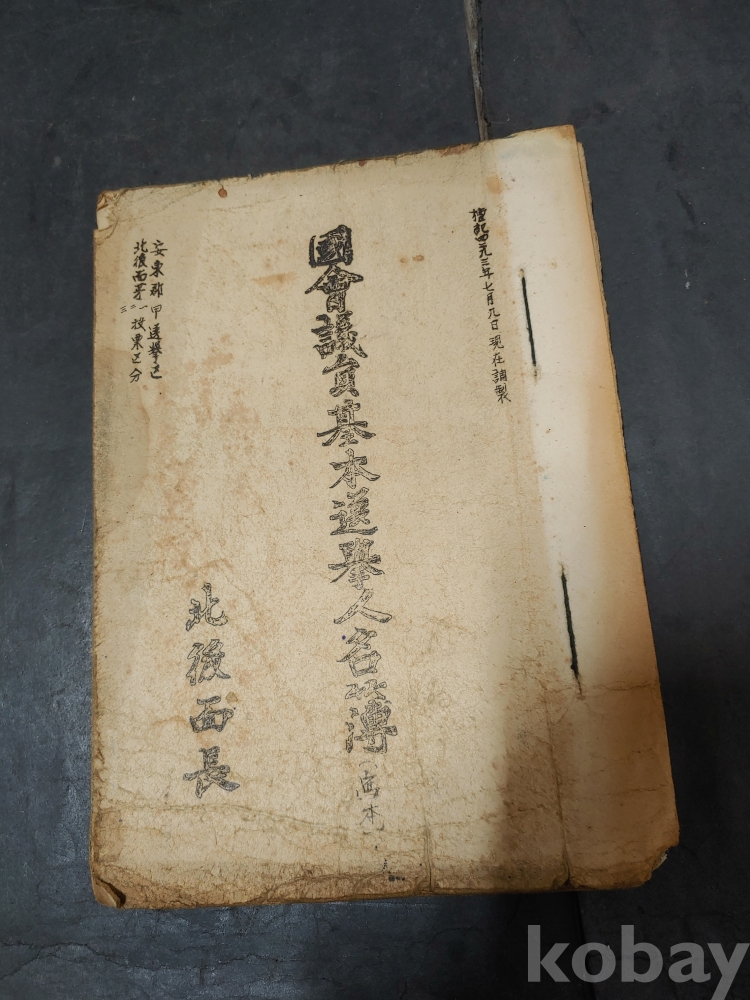 檀紀四二九三年七月九日現在調製
國會議員基本選擧人名簿
北後面長
安東郡甲選擧区
北後面第一二三投票区分
kobay